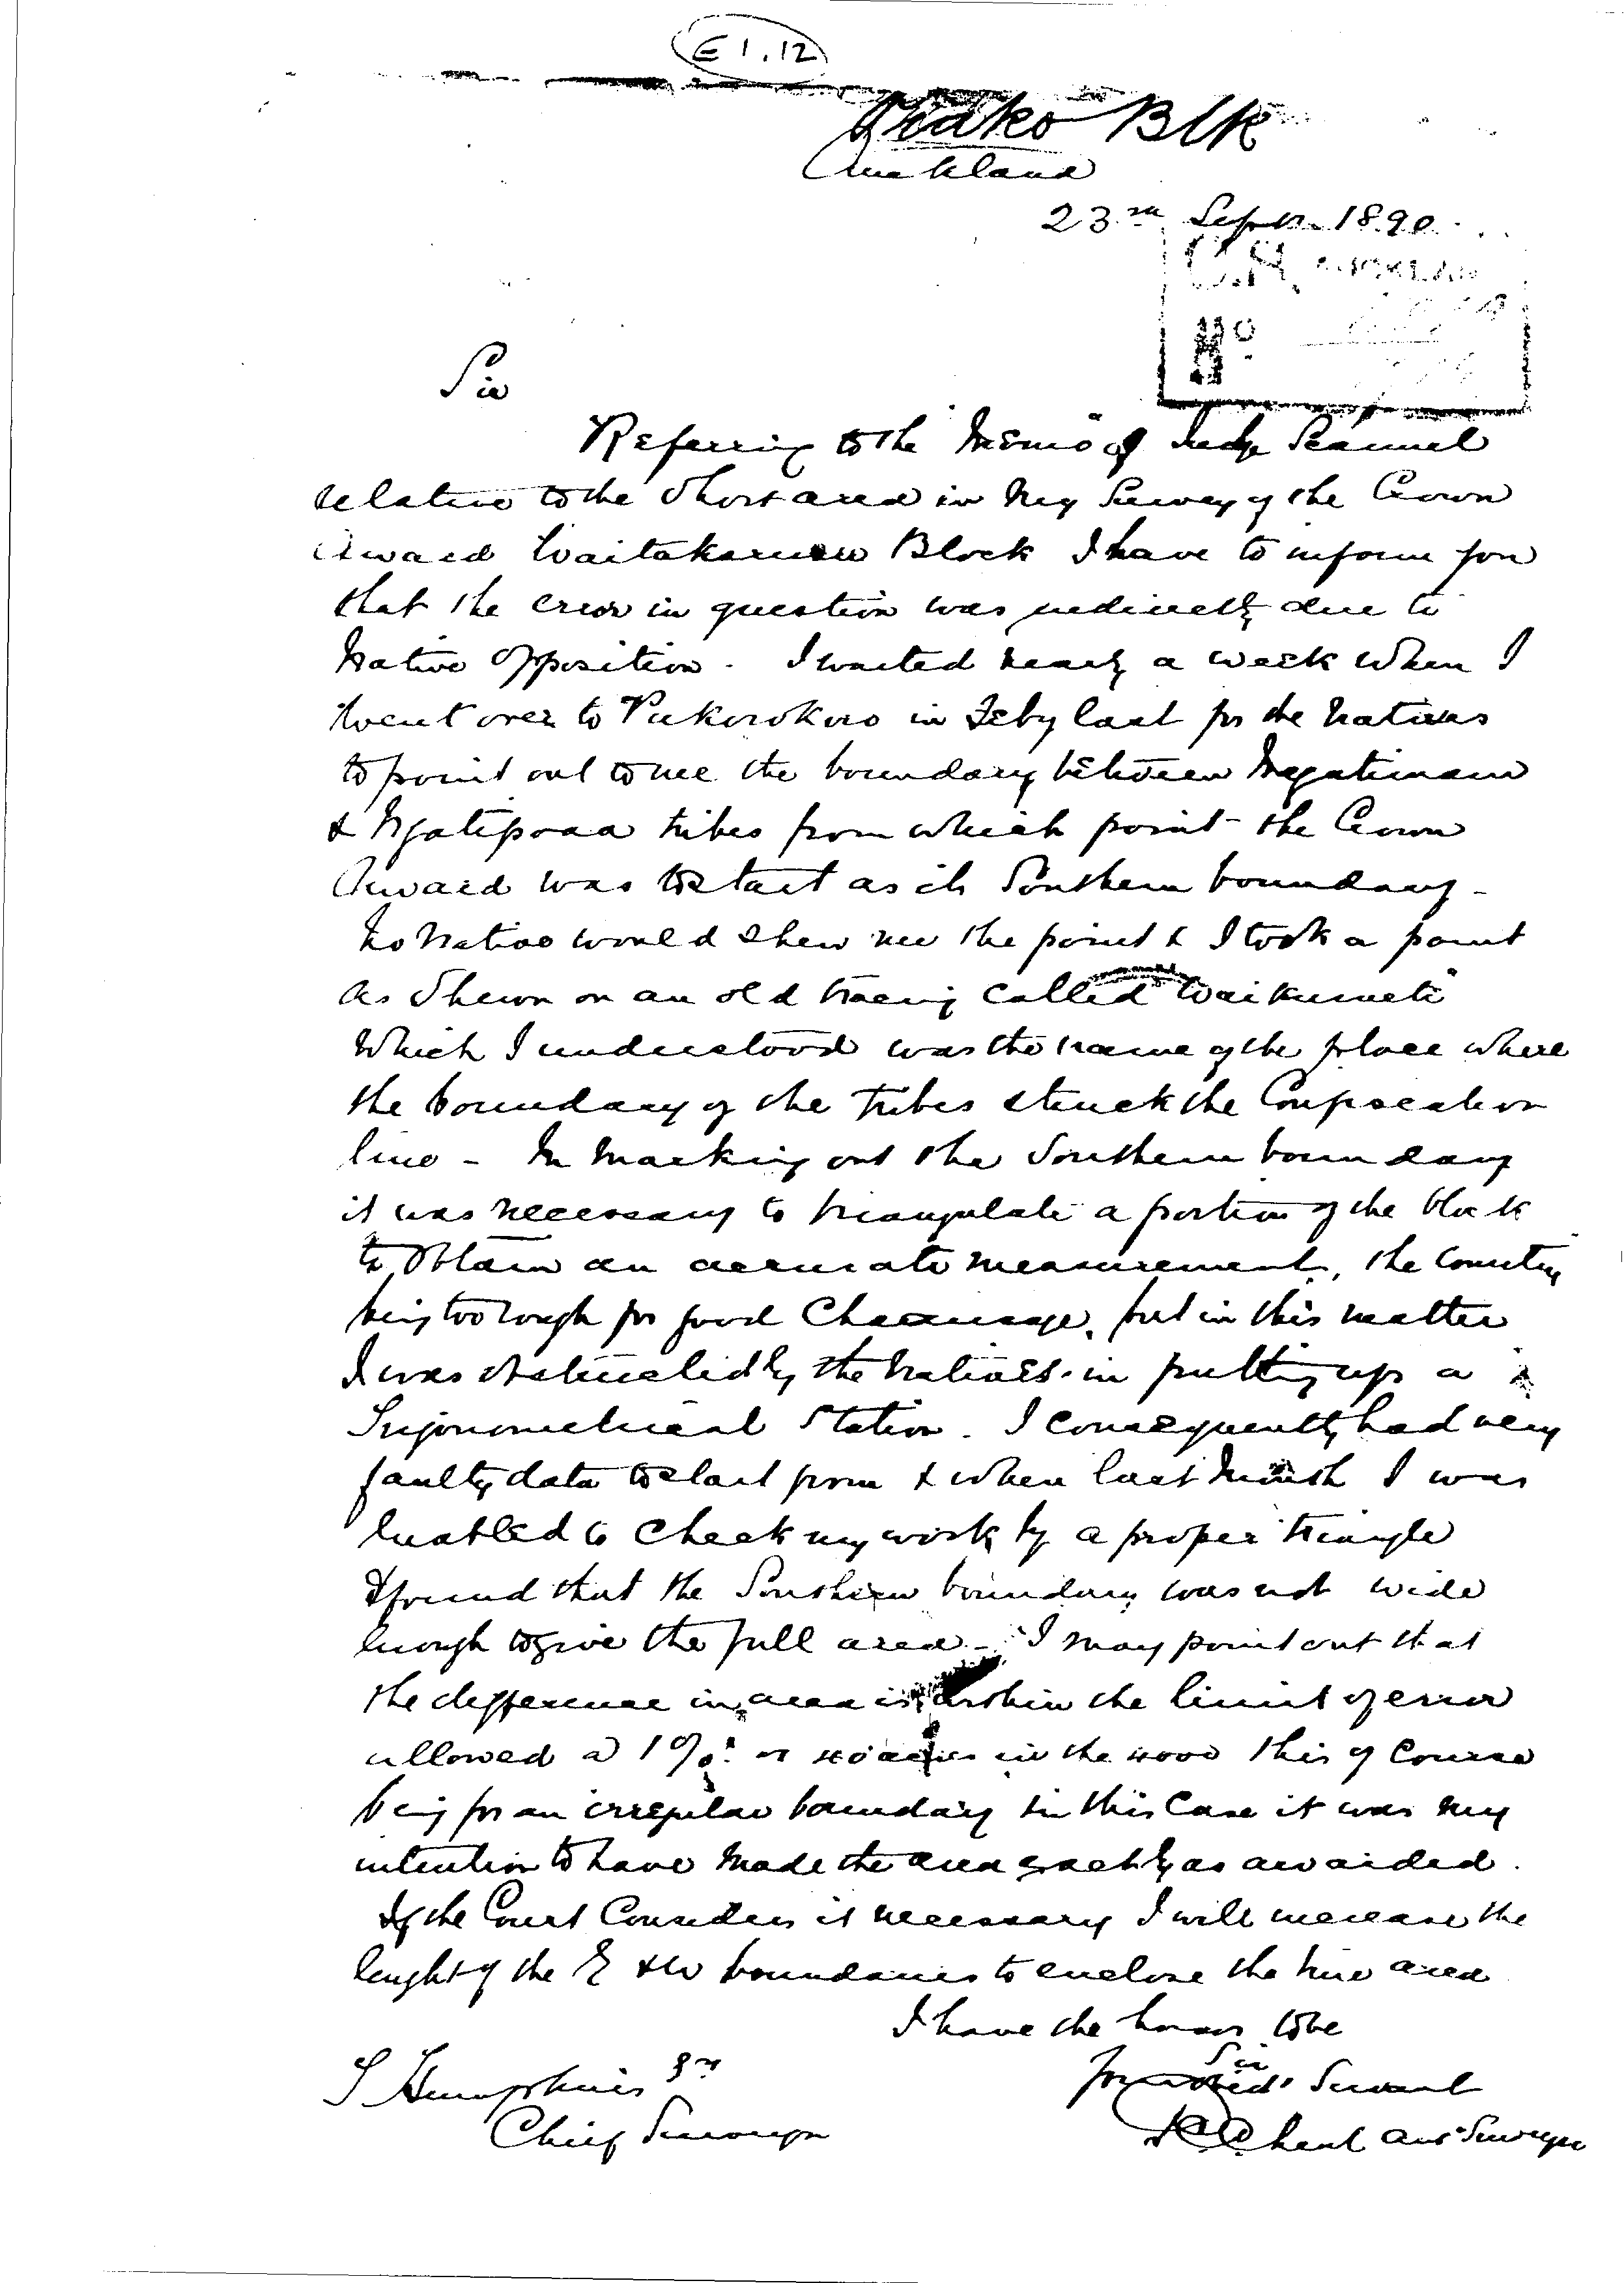 E 1.12
Piako Blk
Auckland
23rd Sept. 1890
AUCKLAND
No
Sir
Referring to the Memo of Judge Scannel
relative to the Short area in my Survey of the Crown
Award Waitakaruru Block I have to inform you
that the error in question was indirectly due to
Native Opposition. I waited nearly a week when I
went over to Pukorokoro in Feby last for the Natives
to point out to me the boundary between Ngatimaru
& Ngatipoaa tribes from which point the Crown
Award was to start as its Southern boundary -
No Native would shew me the point & I took a point
as Shewn on an old tracing called "Waikumete"
Which I understood was the name of the place where
the boundary of the tribes struck the Confiscation
line - In Marking out the Southern boundary
it was necessary to triangulate a portion of the block
to Obtain an accurate measurement, the Country
being too rough for good Chainage, but in this matter
I was obstructed by the Natives in putting up a
Trigonometrical Station. I consequently had very
faulty data to start from & when last Month I was
enabled to Check my work by a proper triangle
I found that the Southern boundary was not wide
enough to give the full area - I may point out that
the difference in area is within the limit of error
allowed a 1% or 40 acres in the 4000 this of Course
being for an irregular boundary in this Case it was my
intention to have Made the area exactly as awarded.
If the Court Considers it necessary I will increase the
lenght of the E & W boundaries to enclose the true area
I have the honor to be
Sir
Your obed' Servant
S Humphries
Chief Surveyor
Kent Aut Surveyor